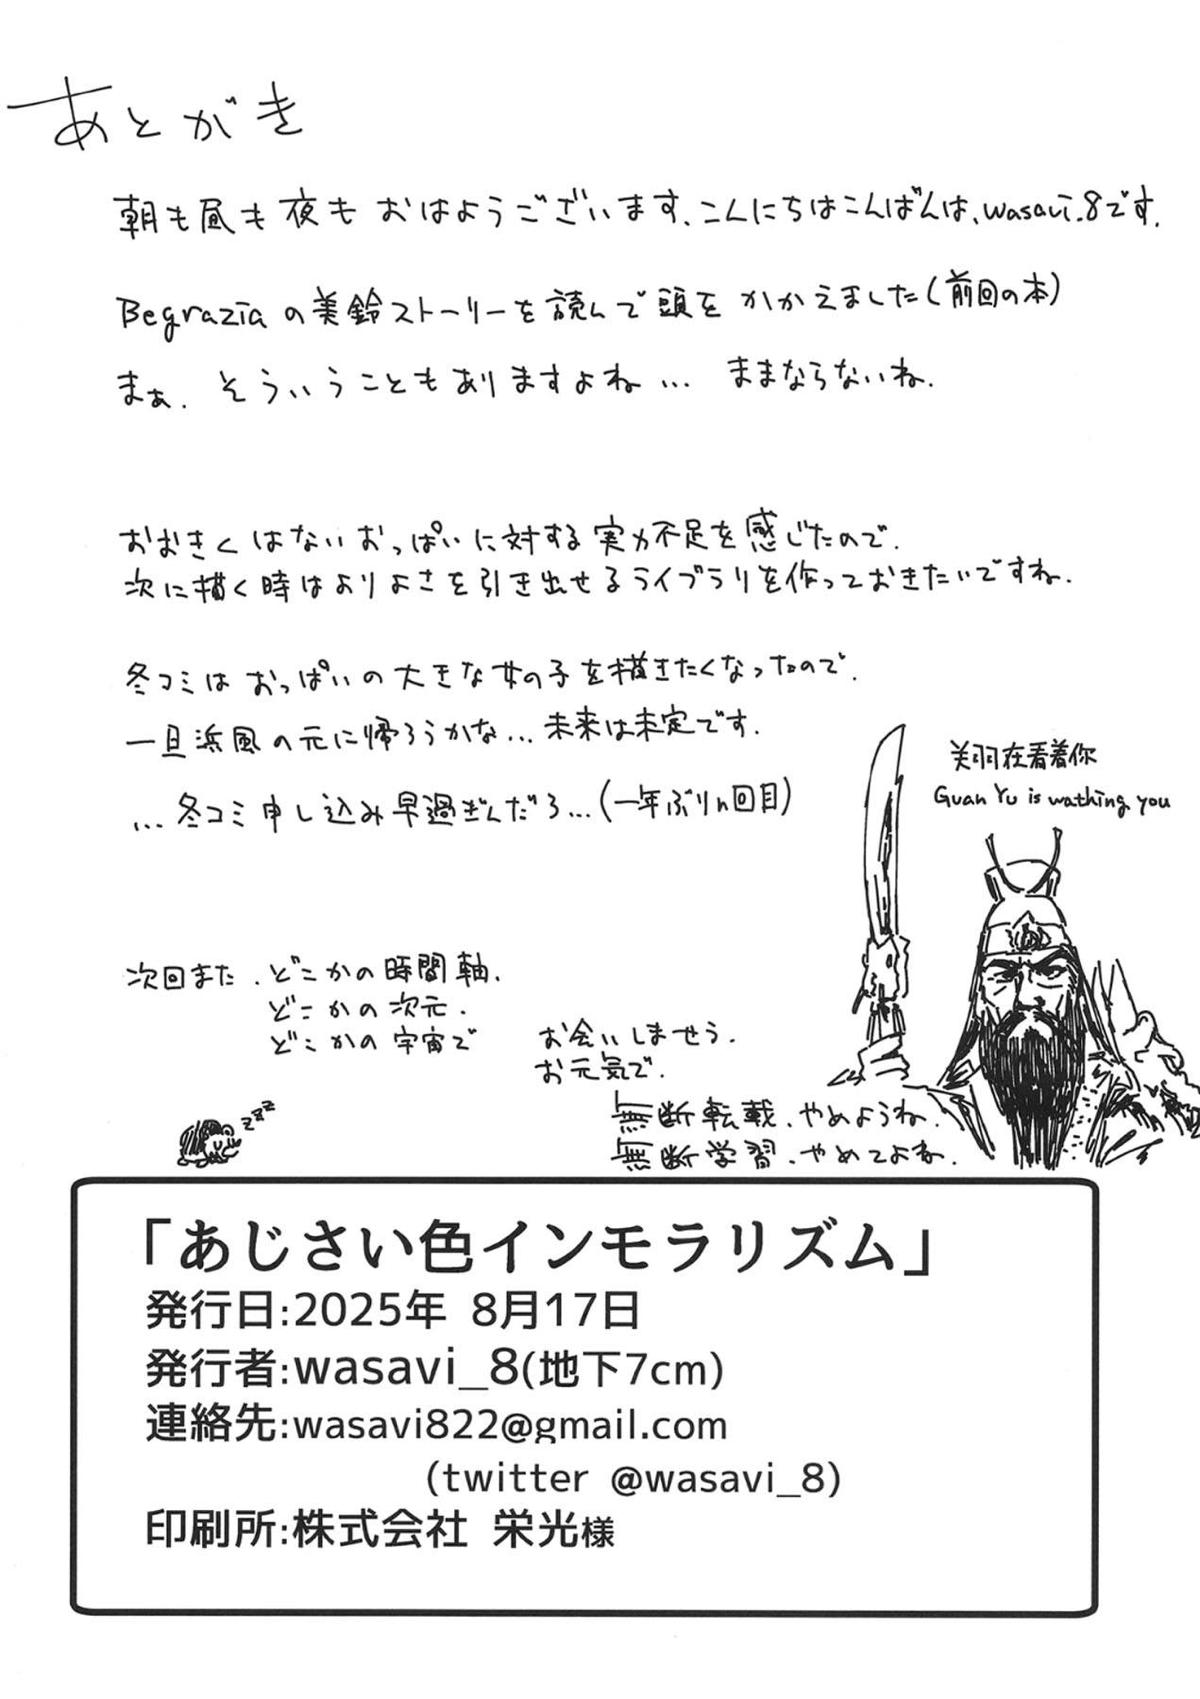 あとがき
朝も昼も夜もおはようございます、こんにちはこんばんは、wasavi.8です。
Begraziaの美鈴ストーリーを読んで頭をかかえました(前回の本)
まぁ、そういうこともありますよね… ままならないね。
おおきくはないおっぱいに対する実力不足を感じたので、
次に描く時はよりよさを引き出せるライブラリを作っておきたいですね。
冬コミはおっぱいの大きな女の子を描きたくなったので、
一旦浜風の元に帰ろうかな…未来は未定です。
…冬コミ申し込み早過ぎんだろ…(一年ぶりn回目)
关羽在看着你
Guan Yu is wathing you
次回また、どこかの時間軸、
どこかの次元、
どこかの宇宙で
お会いしませう。
お元気で。
zzz
無断転載、やめようね。
無断学習、やめてよね。
「あじさい色インモラリズム」
発行日:2025年 8月17日
発行者:wasavi_8(地下7cm)
連絡先:wasavi822@gmail.com
(twitter @wasavi_8)
印刷所:株式会社 栄光様